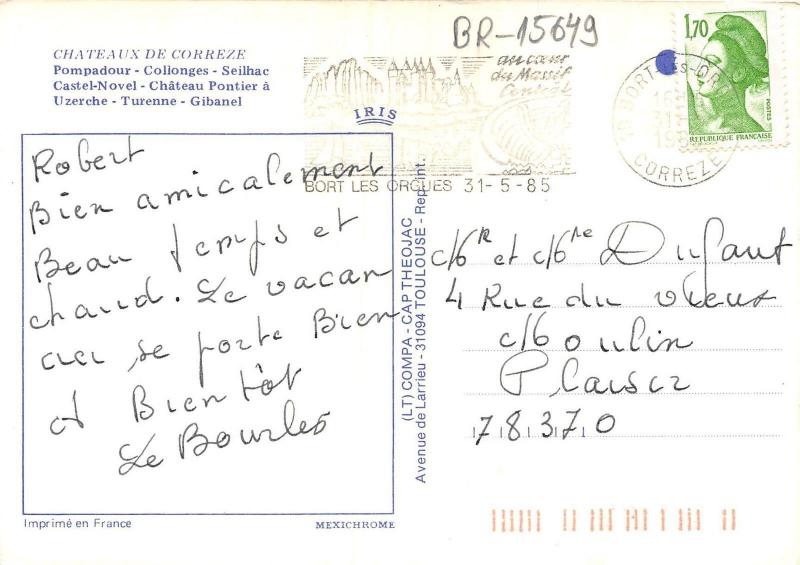 BR-15649
CHATEAUX DE CORREZE
Pompadour - Collonges - Seilhac
Castel-Novel - Château Pontier à
Uzerche - Turenne - Gibanel
IRIS
au cœur
du Massif
Central
BORT LES ORGUES 31-5-85
BORT-LES-ORGUES
31
CORREZE
1,70
POSTES
REPUBLIQUE FRANÇAISE
Robert
Bien amicalement
Beau temps et
chaud. Le vacan
cier se porte Bien
a Bientôt
Le
(LT) COMPA - CAP THEOJAC
Avenue de Larrieu - 31094 TOULOUSE - Reprint.
et
4 Rue du vieux
Moulin
Plaisir
78370
Imprimé en France
MEXICHROME